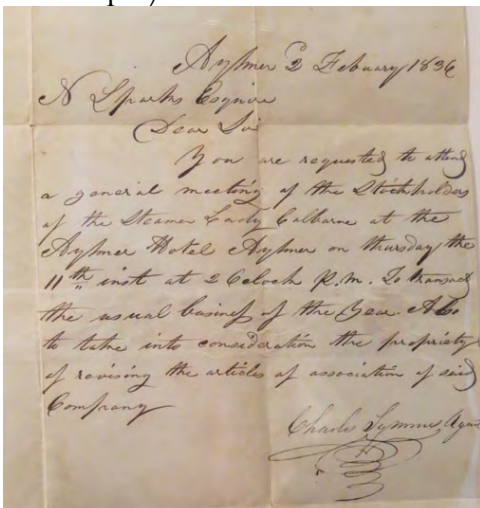 Aylmer 2 February 1836
N Sparks Esquire
Dear Sir
You are requested to attend
a general meeting of the Stockholders
of the Steamer Lady Colbarne at the
Aylmer Hotel Aylmer on thursday the
11th inst at 2 Oclock P.m. To transact
the usual business of the Year. Also
to take into consideration the propriety
of revising the articles of association of said
Company
Charles Symmes Agent